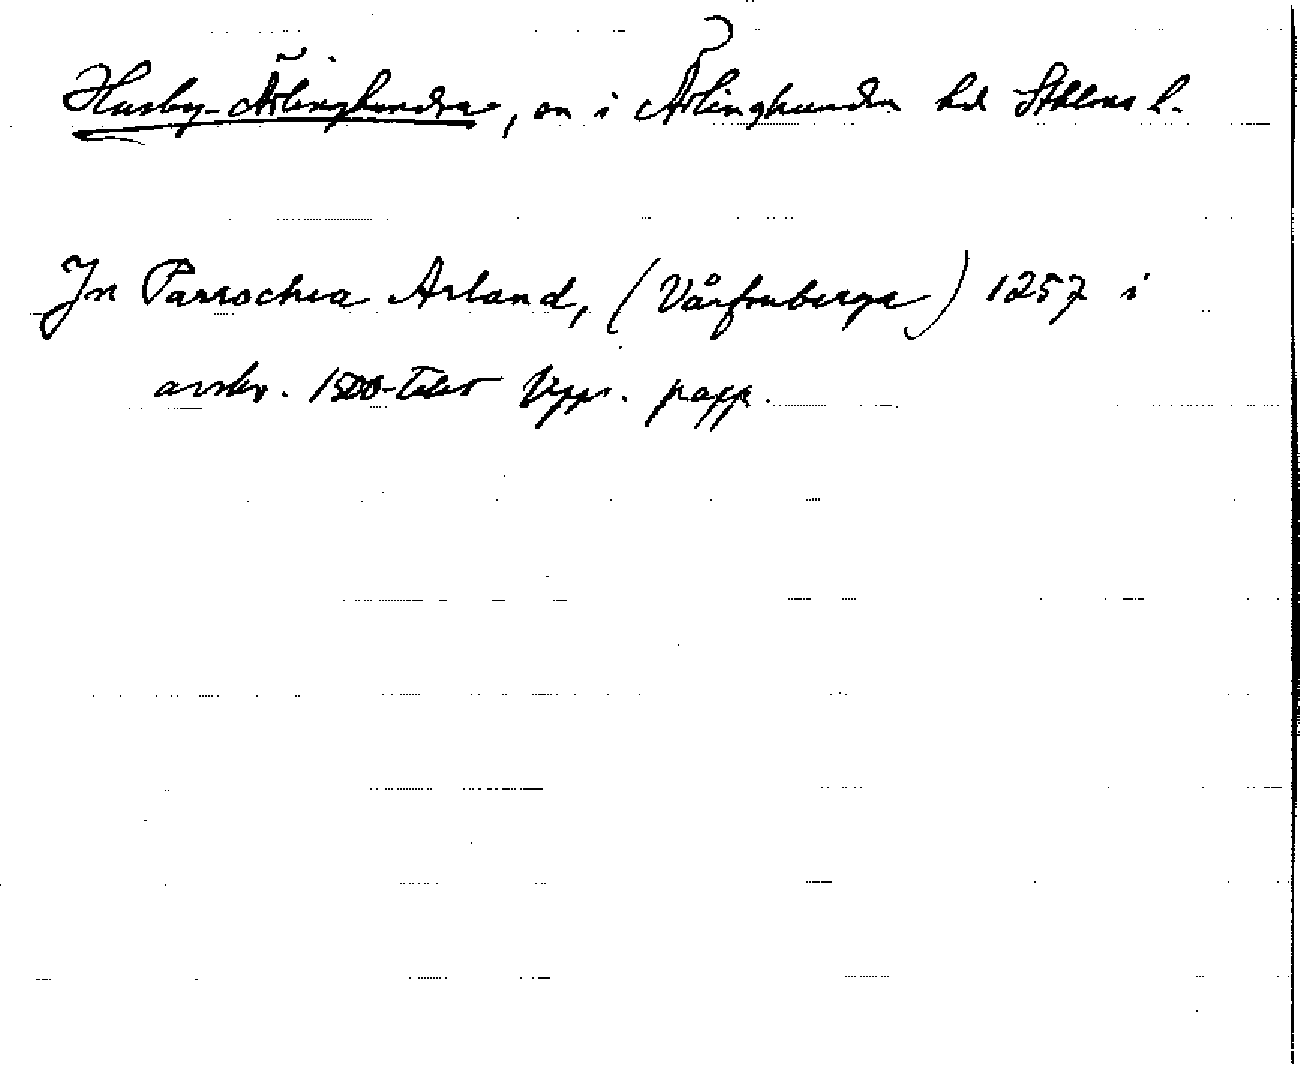 Husby-Ärlinghundra, sn i Ärlinghundra hd Sthlms l.
In Parrochia Arland, (Vårfruberga) 1257 i
avskr. 1500-talet Upps. papp.